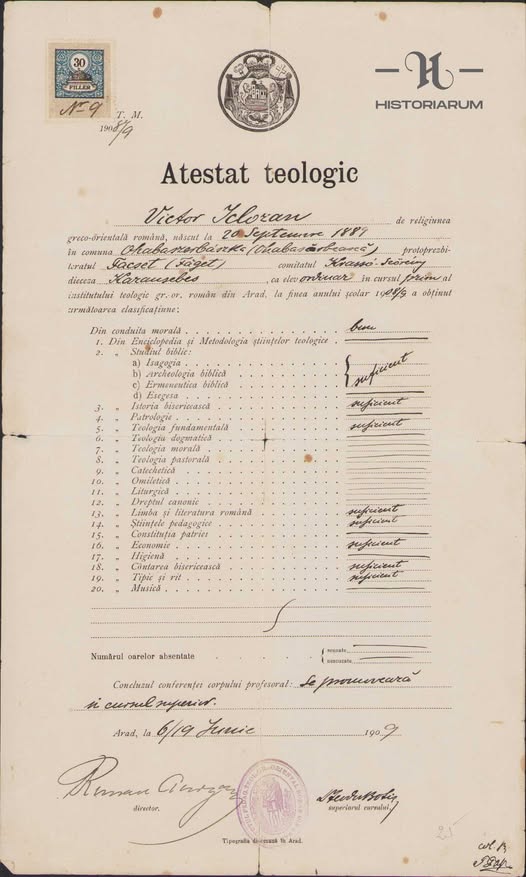 30
FILLER
Nº 9
T. M.
1908/9
HISTORIARUM
Atestat teologic
Victor Iclozan de religiunea
greco-orientală română, născut la 20 Septemvre 1889
în comuna Ohabaszerbászka (Ohabasârbească) protoprezbi-
teratul Facset (Făget) comitatul Krassó-Szörény
dieceza Karansebes, ca elev ordinar în cursul prim al
institutului teologic gr. or. român din Arad, la finea anului școlar 1908/9 a obținut
următoarea clasificațiune:
Din conduita morală bun
1. Din Enciclopedia și Metodologia științelor teologice
2. „ Studiul biblic:
a) Isagogia
b) Archeologia biblică suficient
c) Ermeneutica biblică
d) Esegesa
3. „ Istoria bisericească suficient
4. „ Patrologie
5. „ Teologia fundamentală suficient
6. „ Teologia dogmatică
7. „ Teologia morală
8. „ Teologia pastorală
9. „ Catechetică
10. „ Omiletică
11. „ Liturgică
12. „ Dreptul canonic
13. „ Limba și literatura română suficient
14. „ Științele pedagogice suficient
15. „ Constituția patriei
16. „ Economie suficient
17. „ Higienă
18. „ Cântarea bisericească suficient
19. „ Tipic și rit suficient
20. „ Musică
Numărul oarelor absentate
scuzate
nescuzate
Concluzul conferenței corpului profesoral: Se promovează
în cursul superior.
Arad, la 6/19 Junie 1909
Roman
director.
superiorul cursului.
Tipografia diecezană în Arad.
25